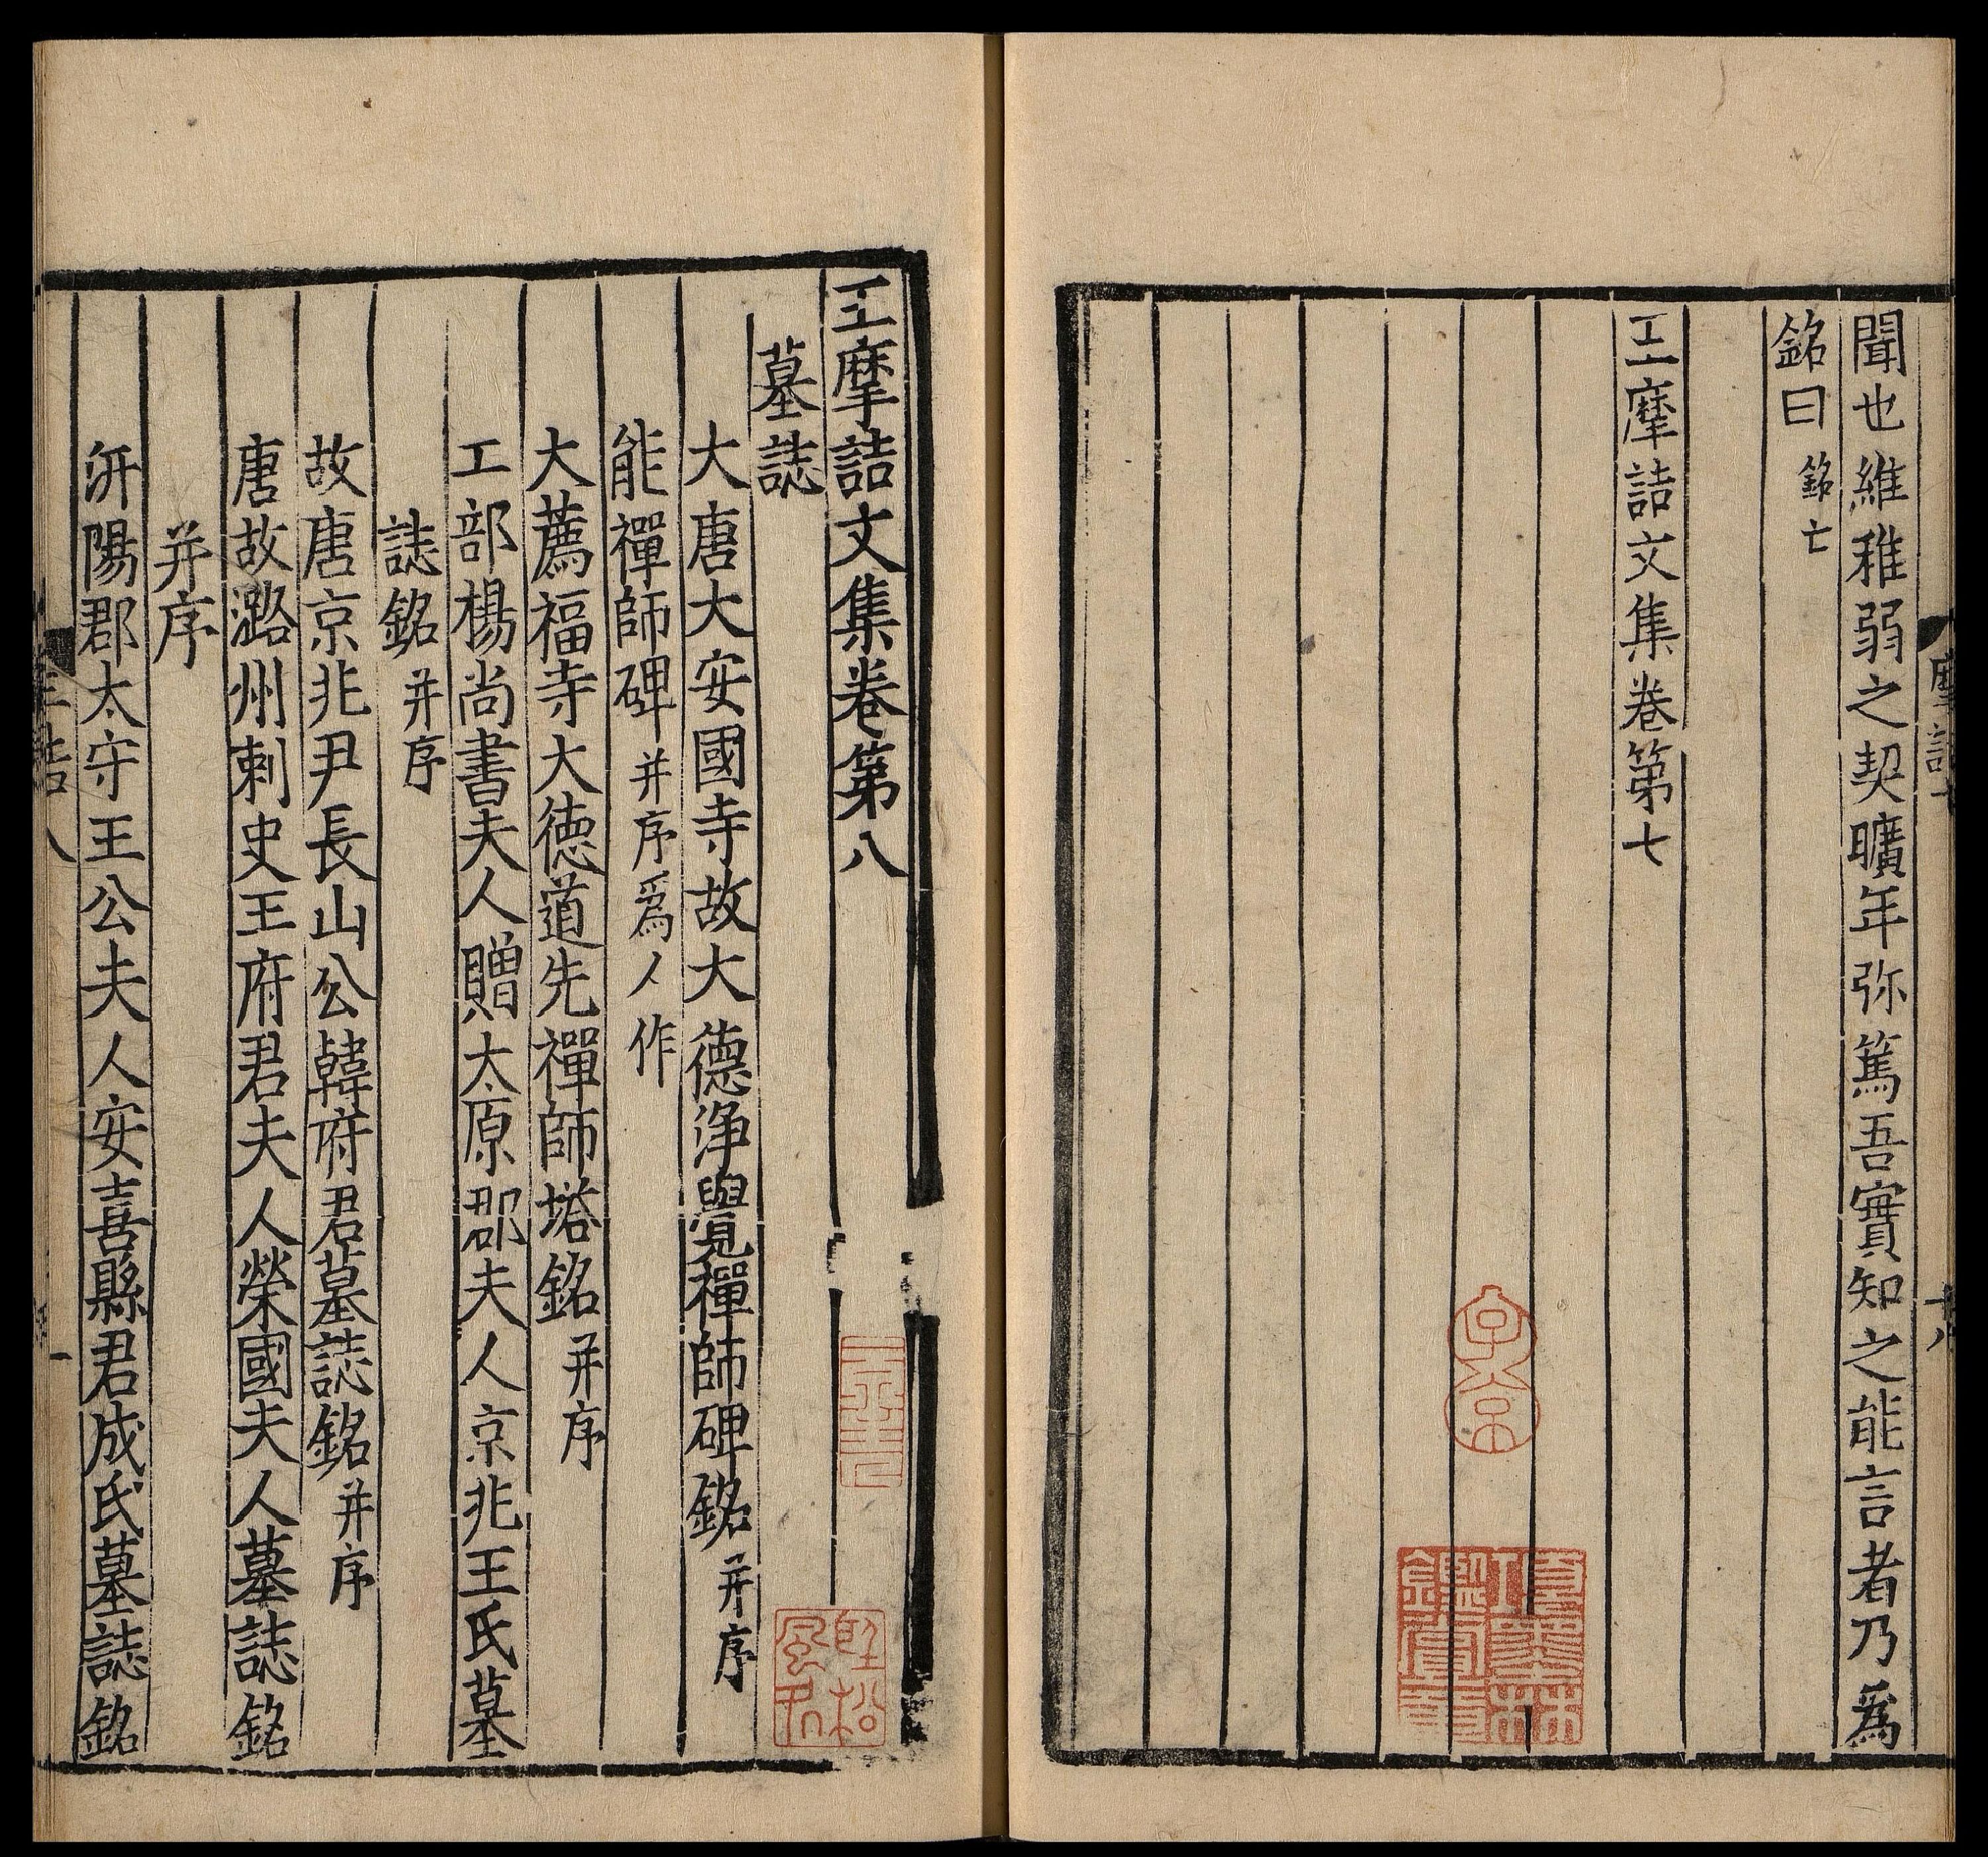 聞也維稚弱之契曠年弥篤吾實知之能言者乃爲
銘曰銘亡
王摩詰文集卷第七
子京
項墨林鑑賞章
王摩詰文集卷第八
墓誌
大唐大安國寺故大德淨覺禪師碑銘并序
能禪師碑并序爲人作
大薦福寺大德道光禪師塔銘并序
工部楊尚書夫人贈太原郡夫人京兆王氏墓
誌銘并序
故唐京兆尹長山公韓府君墓誌銘并序
唐故潞州刺史王府君夫人榮國夫人墓誌銘
并序
汧陽郡太守王公夫人安喜縣君成氏墓誌銘